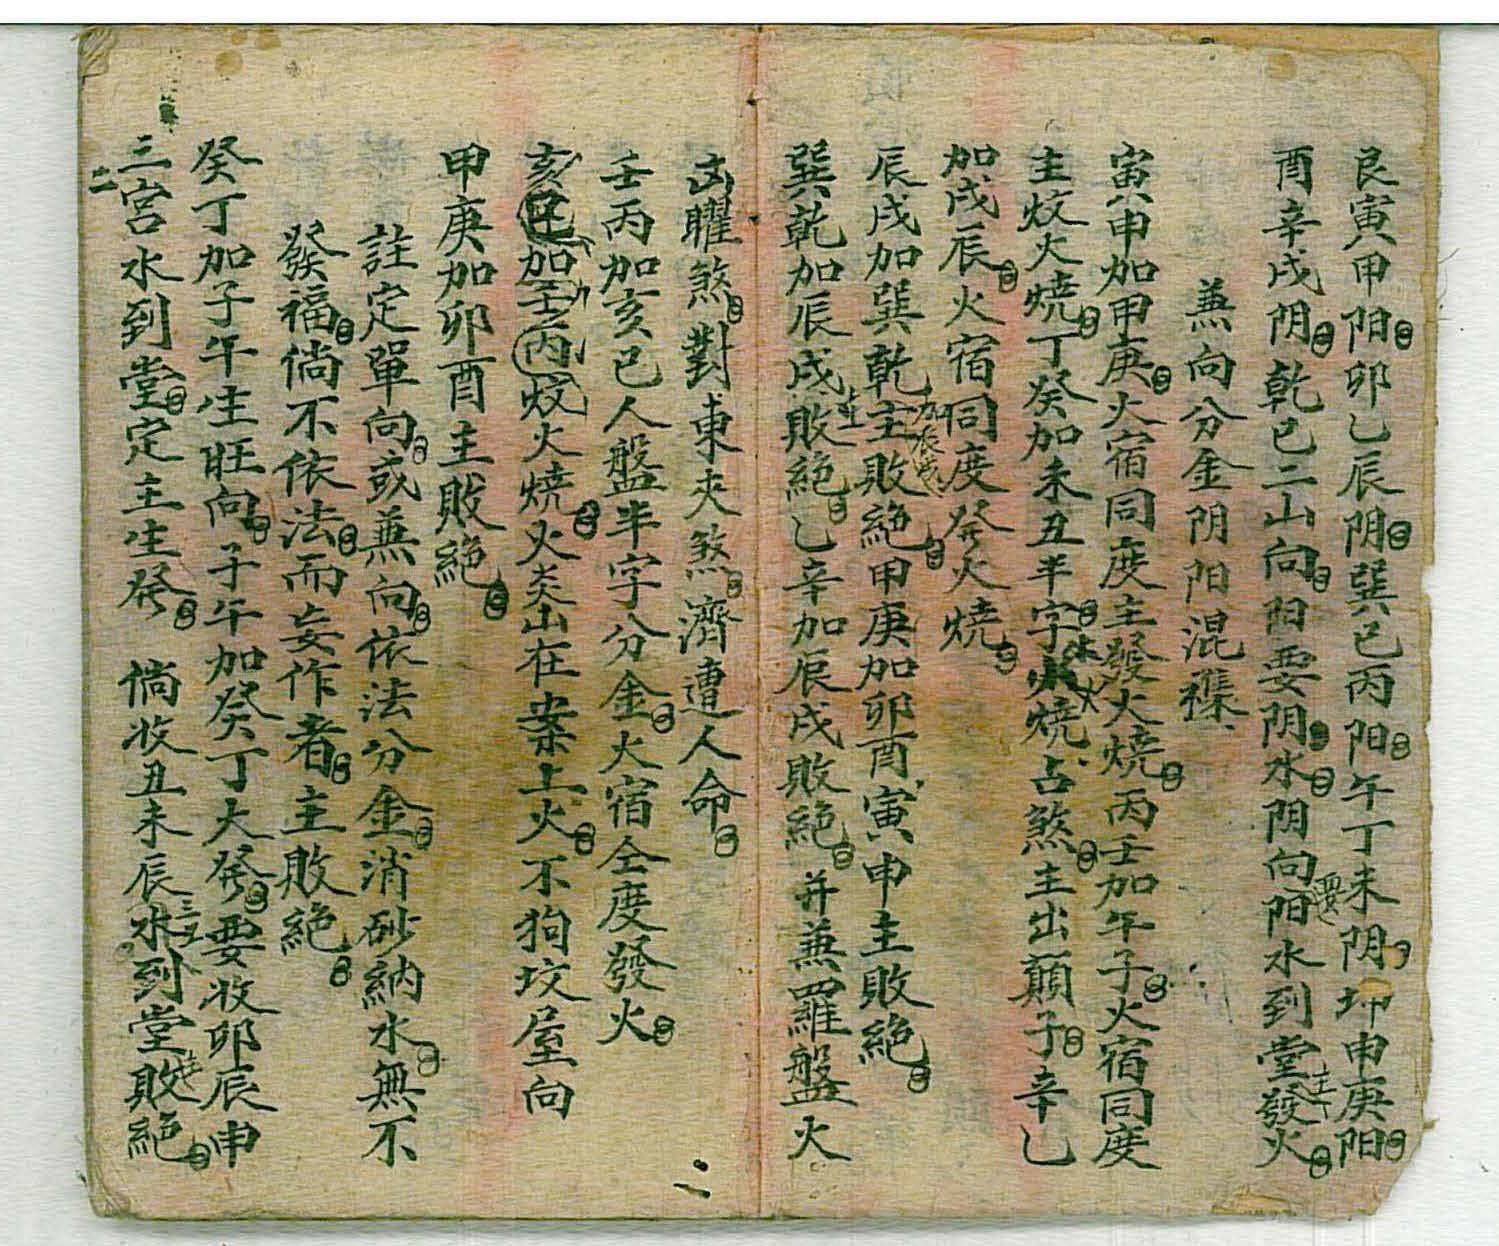 艮寅甲阳卯乙辰阴巽巳丙阳午丁未阴坤申庚阳
酉辛戌阴乾巳二山向阳要阴水阴向阳要水到堂主發火
兼向分金阴阳混襍
寅申加甲庚火宿同度主發火燒丙壬加午子火宿同度
主炆火燒丁癸加未丑半字火燒占煞主出顛子辛乙
加戌辰火宿同度發火燒
辰戌加巽乾加辰戌主敗絕甲庚加卯酉寅申主敗絕
巽乾加辰戌主敗絕乙辛加辰戌敗絕并兼羅盤火
凶曜煞對東夾煞濟遭人命
壬丙加亥巳人盤半字分金火宿仝度發火
亥巳加壬丙炆火燒火炎山在案上火不狗坟屋向
甲庚加卯酉主敗絕
註定單向或兼向依法分金消砂納水無不
發福倘不依法而妄作者主敗絕
癸丁加子午生旺向子午加癸丁大發要收卯辰申
三宮水到堂定主生發 倘收丑未辰三宮水到堂主敗絕